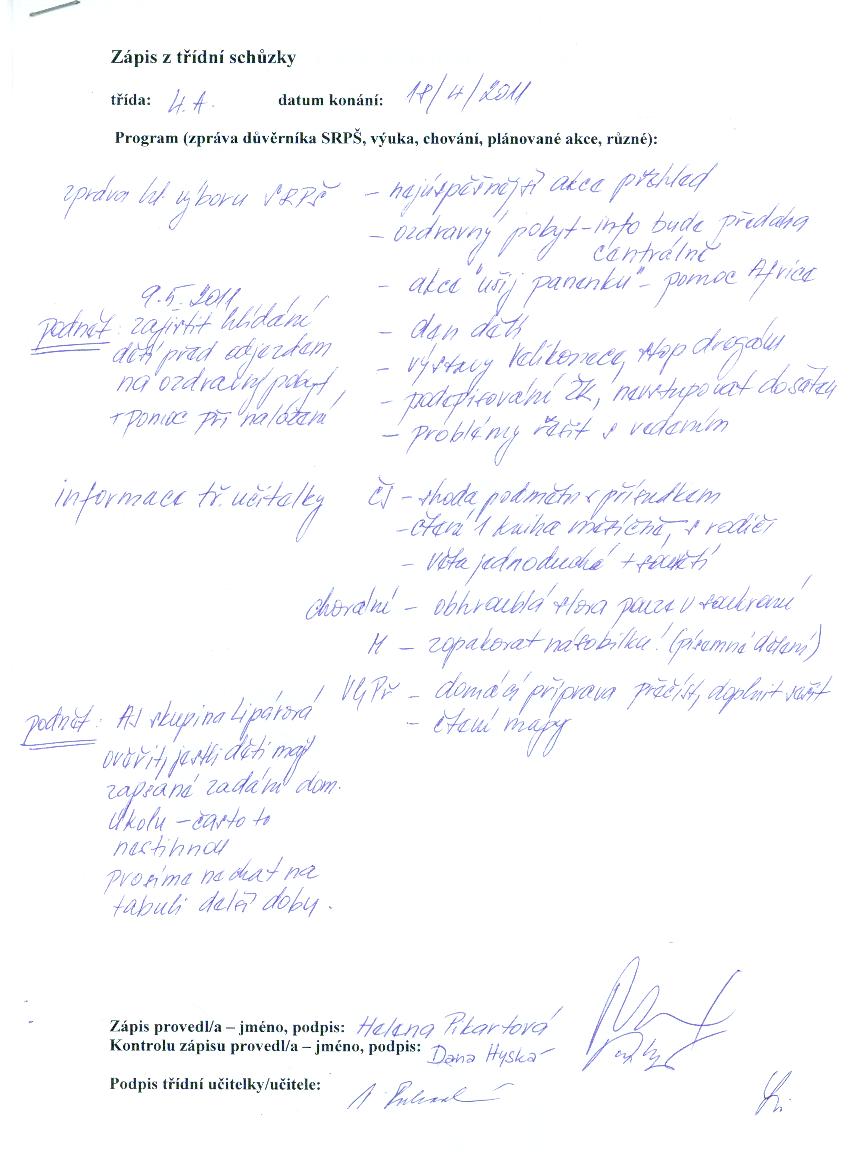 Zápis z třídní schůzky
třída: 4. A. datum konání: 18/4/2011
Program (zpráva důvěrníka SRPŠ, výuka, chování, plánované akce, různé):
zpráva hl. výboru SRPŠ – nejúspěšnější akce přehled
– ozdravný pobyt – info bude předána
centrálně
– akce "ušij panenku" – pomoc Africe
– den dětí
– výstavy Velikonoce, stop drogám
– podepisování ŽK, nevstupovat do šaten
– problémy řešit s vedením
9.5.2011
podnět: zajistit hlídání
dětí před odjezdem
na ozdravný pobyt
+ pomoc při naložení
informace tř. učitelky ČJ – shoda podmětu s přísudkem
– čtení 1 kniha měsíčně, s rodiči
– věta jednoduchá + souvětí
chování – obhroublá slova pouze v soukromí
M – zopakovat násobilku! (písemné dělení)
Vl, Př – domácí příprava přečíst, doplnit sešit
– čtení mapy
podnět: AJ skupina Lipárová
ověřit, jestli děti mají
zapsané zadání dom.
úkolu – často to
nestihnou
prosíme nechat na
tabuli delší dobu.
Zápis provedl/a – jméno, podpis: Helena Pikartová
Kontrolu zápisu provedl/a – jméno, podpis: Dana Hyská
Podpis třídní učitelky/učitele: